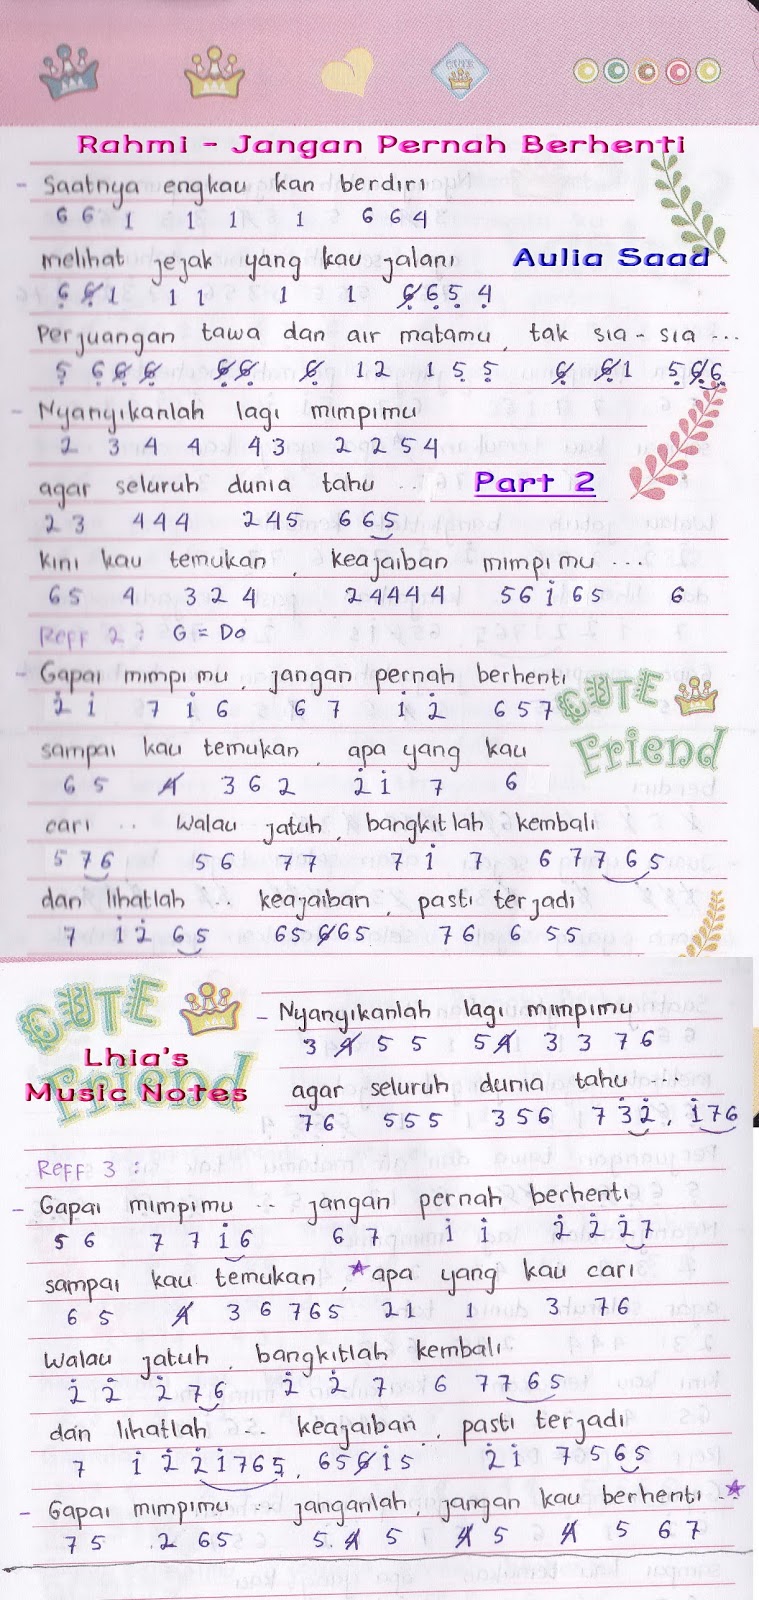 CUTE
Rahmi - Jangan Pernah Berhenti
- Saatnya engkau kan berdiri
6 6 1 1 1 1 1 6 6 4
melihat jejak yang kau jalani
Aulia Saad
6 6 1 1 1 1 1 6 6 5 4
Perjuangan tawa dan air matamu, tak sia-sia ...
5 6 6 6 6 6 6 1 2 1 5 5 6 6 1 5 6 6
- Nyanyikanlah lagi mimpimu
2 3 4 4 4 3 2 2 5 4
agar seluruh dunia tahu ..
Part 2
2 3 4 4 4 2 4 5 6 6 5
kini kau temukan, keajaiban mimpimu ...
6 5 4 3 2 4 2 4 4 4 4 5 6 i 6 5 6
Reff 2 : G = Do
- Gapai mimpimu, jangan pernah berhenti
2 i 7 i 6 6 7 i 2 6 5 7
CUTE
Friend
sampai kau temukan, apa yang kau
6 5 4 3 6 2 2 i 7 6
cari .. walau jatuh, bangkitlah kembali
5 7 6 5 6 7 7 7 i 7 6 7 7 6 5
dan lihatlah .. keajaiban, pasti terjadi
7 i 2 6 5 6 5 6 6 5 7 6 6 5 5
CUTE
Friend
Lhia's
Music Notes
- Nyanyikanlah lagi mimpimu
3 4 5 5 5 4 3 3 7 6
agar seluruh dunia tahu ...
7 6 5 5 5 3 5 6 7 3 2, i 7 6
Reff 3 :
- Gapai mimpimu .. jangan pernah berhenti
5 6 7 7 i 6 6 7 i i 2 2 2 7
sampai kau temukan, * apa yang kau cari
6 5 4 3 6 7 6 5 2 1 1 3 7 6
walau jatuh, bangkitlah kembali
2 2 2 7 6 2 2 7 6 7 7 6 5
dan lihatlah .. keajaiban, pasti terjadi
7 i 2 2 i 7 6 5, 6 5 6 i 5 2 i 7 5 6 5
- Gapai mimpimu .. janganlah, jangan kau berhenti .. *
7 5 2 6 5 5 4 5 4 5 4 5 6 7